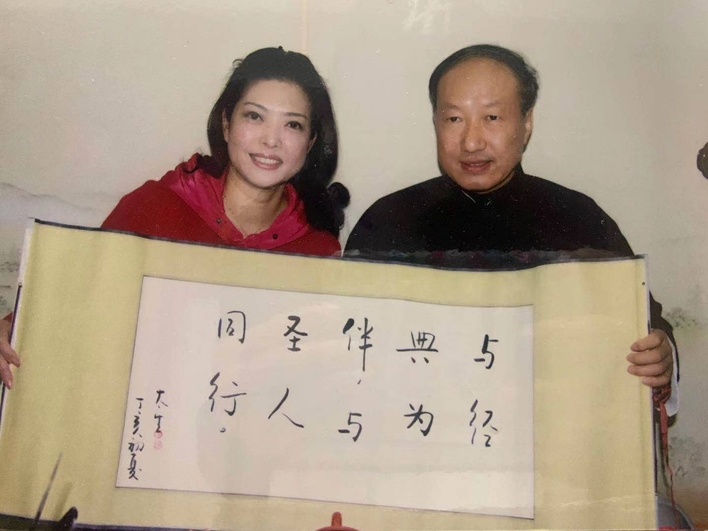 与经
典为
伴，与
圣人
同行。
太生
丁亥初夏